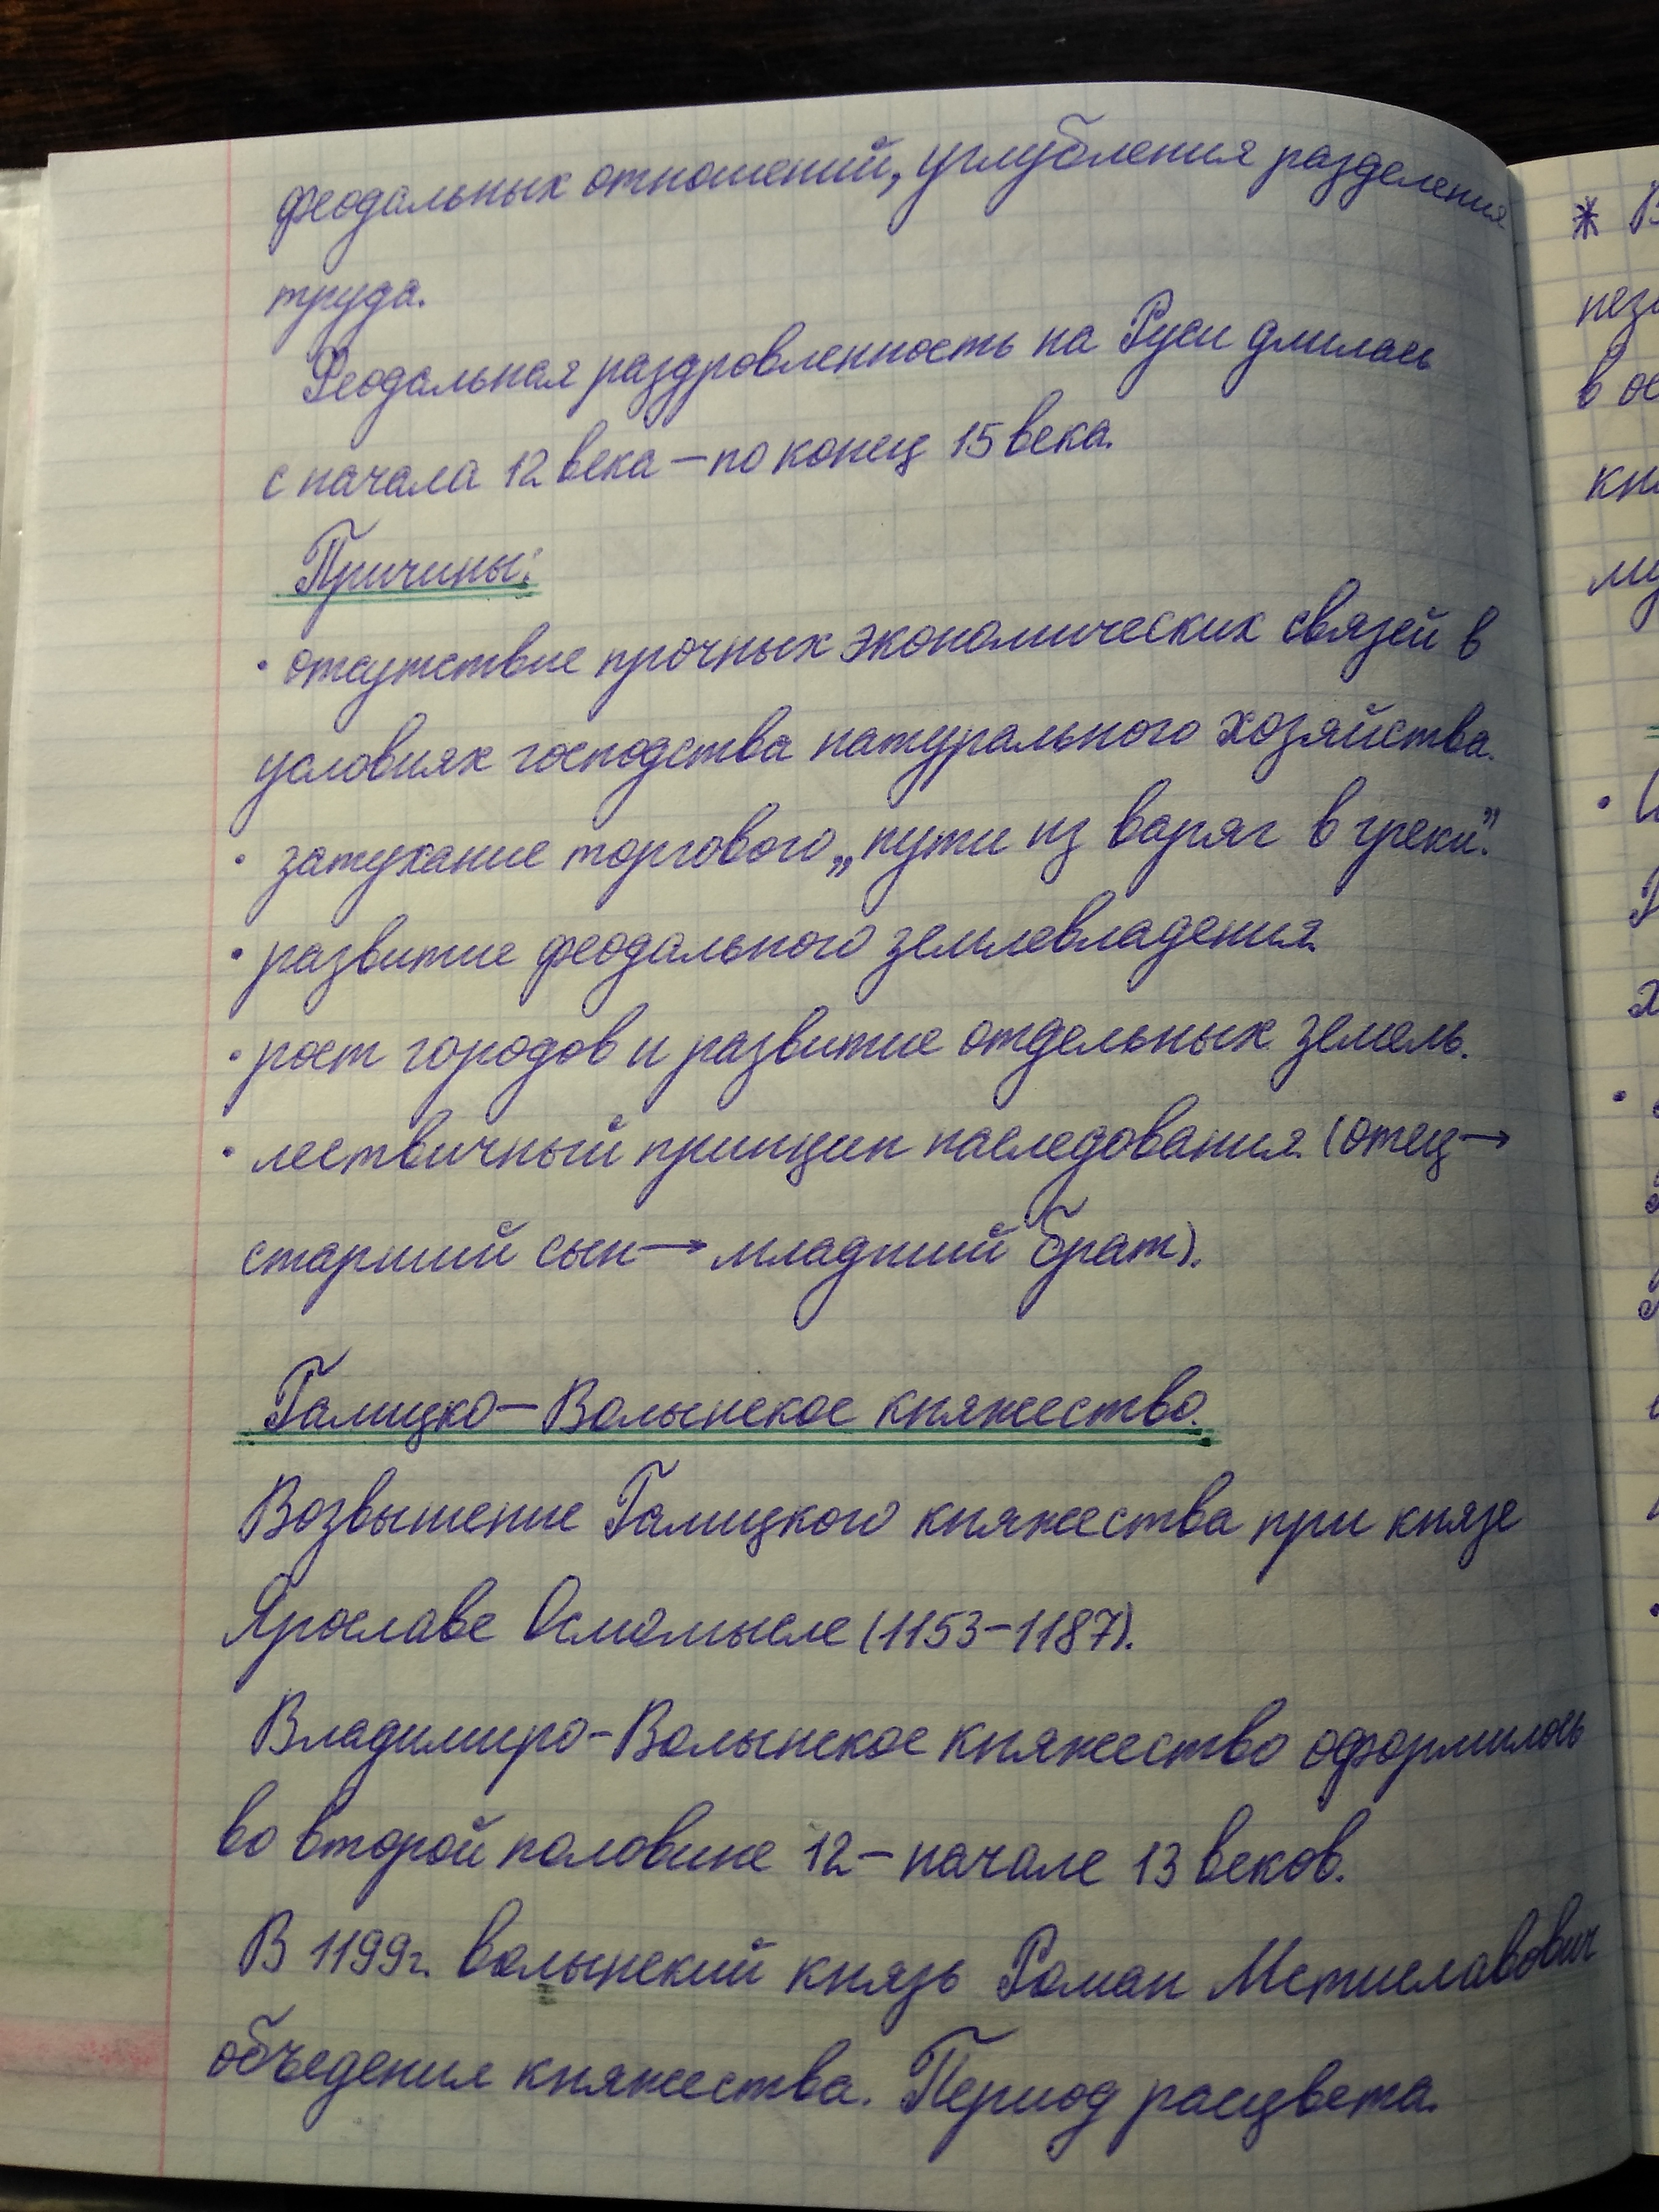 феодальных отношений, углубления разделения
труда.
Феодальная раздровленность на Руси длилась
с начала 12 века — по конец 15 века.
Причины:
• отсутствие прочных экономических связей в
условиях господства натурального хозяйства.
• затухание торгового „пути из варяг в греки”.
• развитие феодального землевладения.
• рост городов и развитие отдельных земель.
• лествичный принцип наследования (отец →
старший сын → младший брат).
Галицко — Волынское княжество.
Возвышение Галицкого княжества при князе
Ярославе Осмомысле (1153 – 1187).
Владимиро-Волынское княжество оформилось
во второй половине 12 — начале 13 веков.
В 1199г. волынский князь Роман Мстиславович
объеденил княжества. Период расцвета.
* В
нез
в ос
кн
му